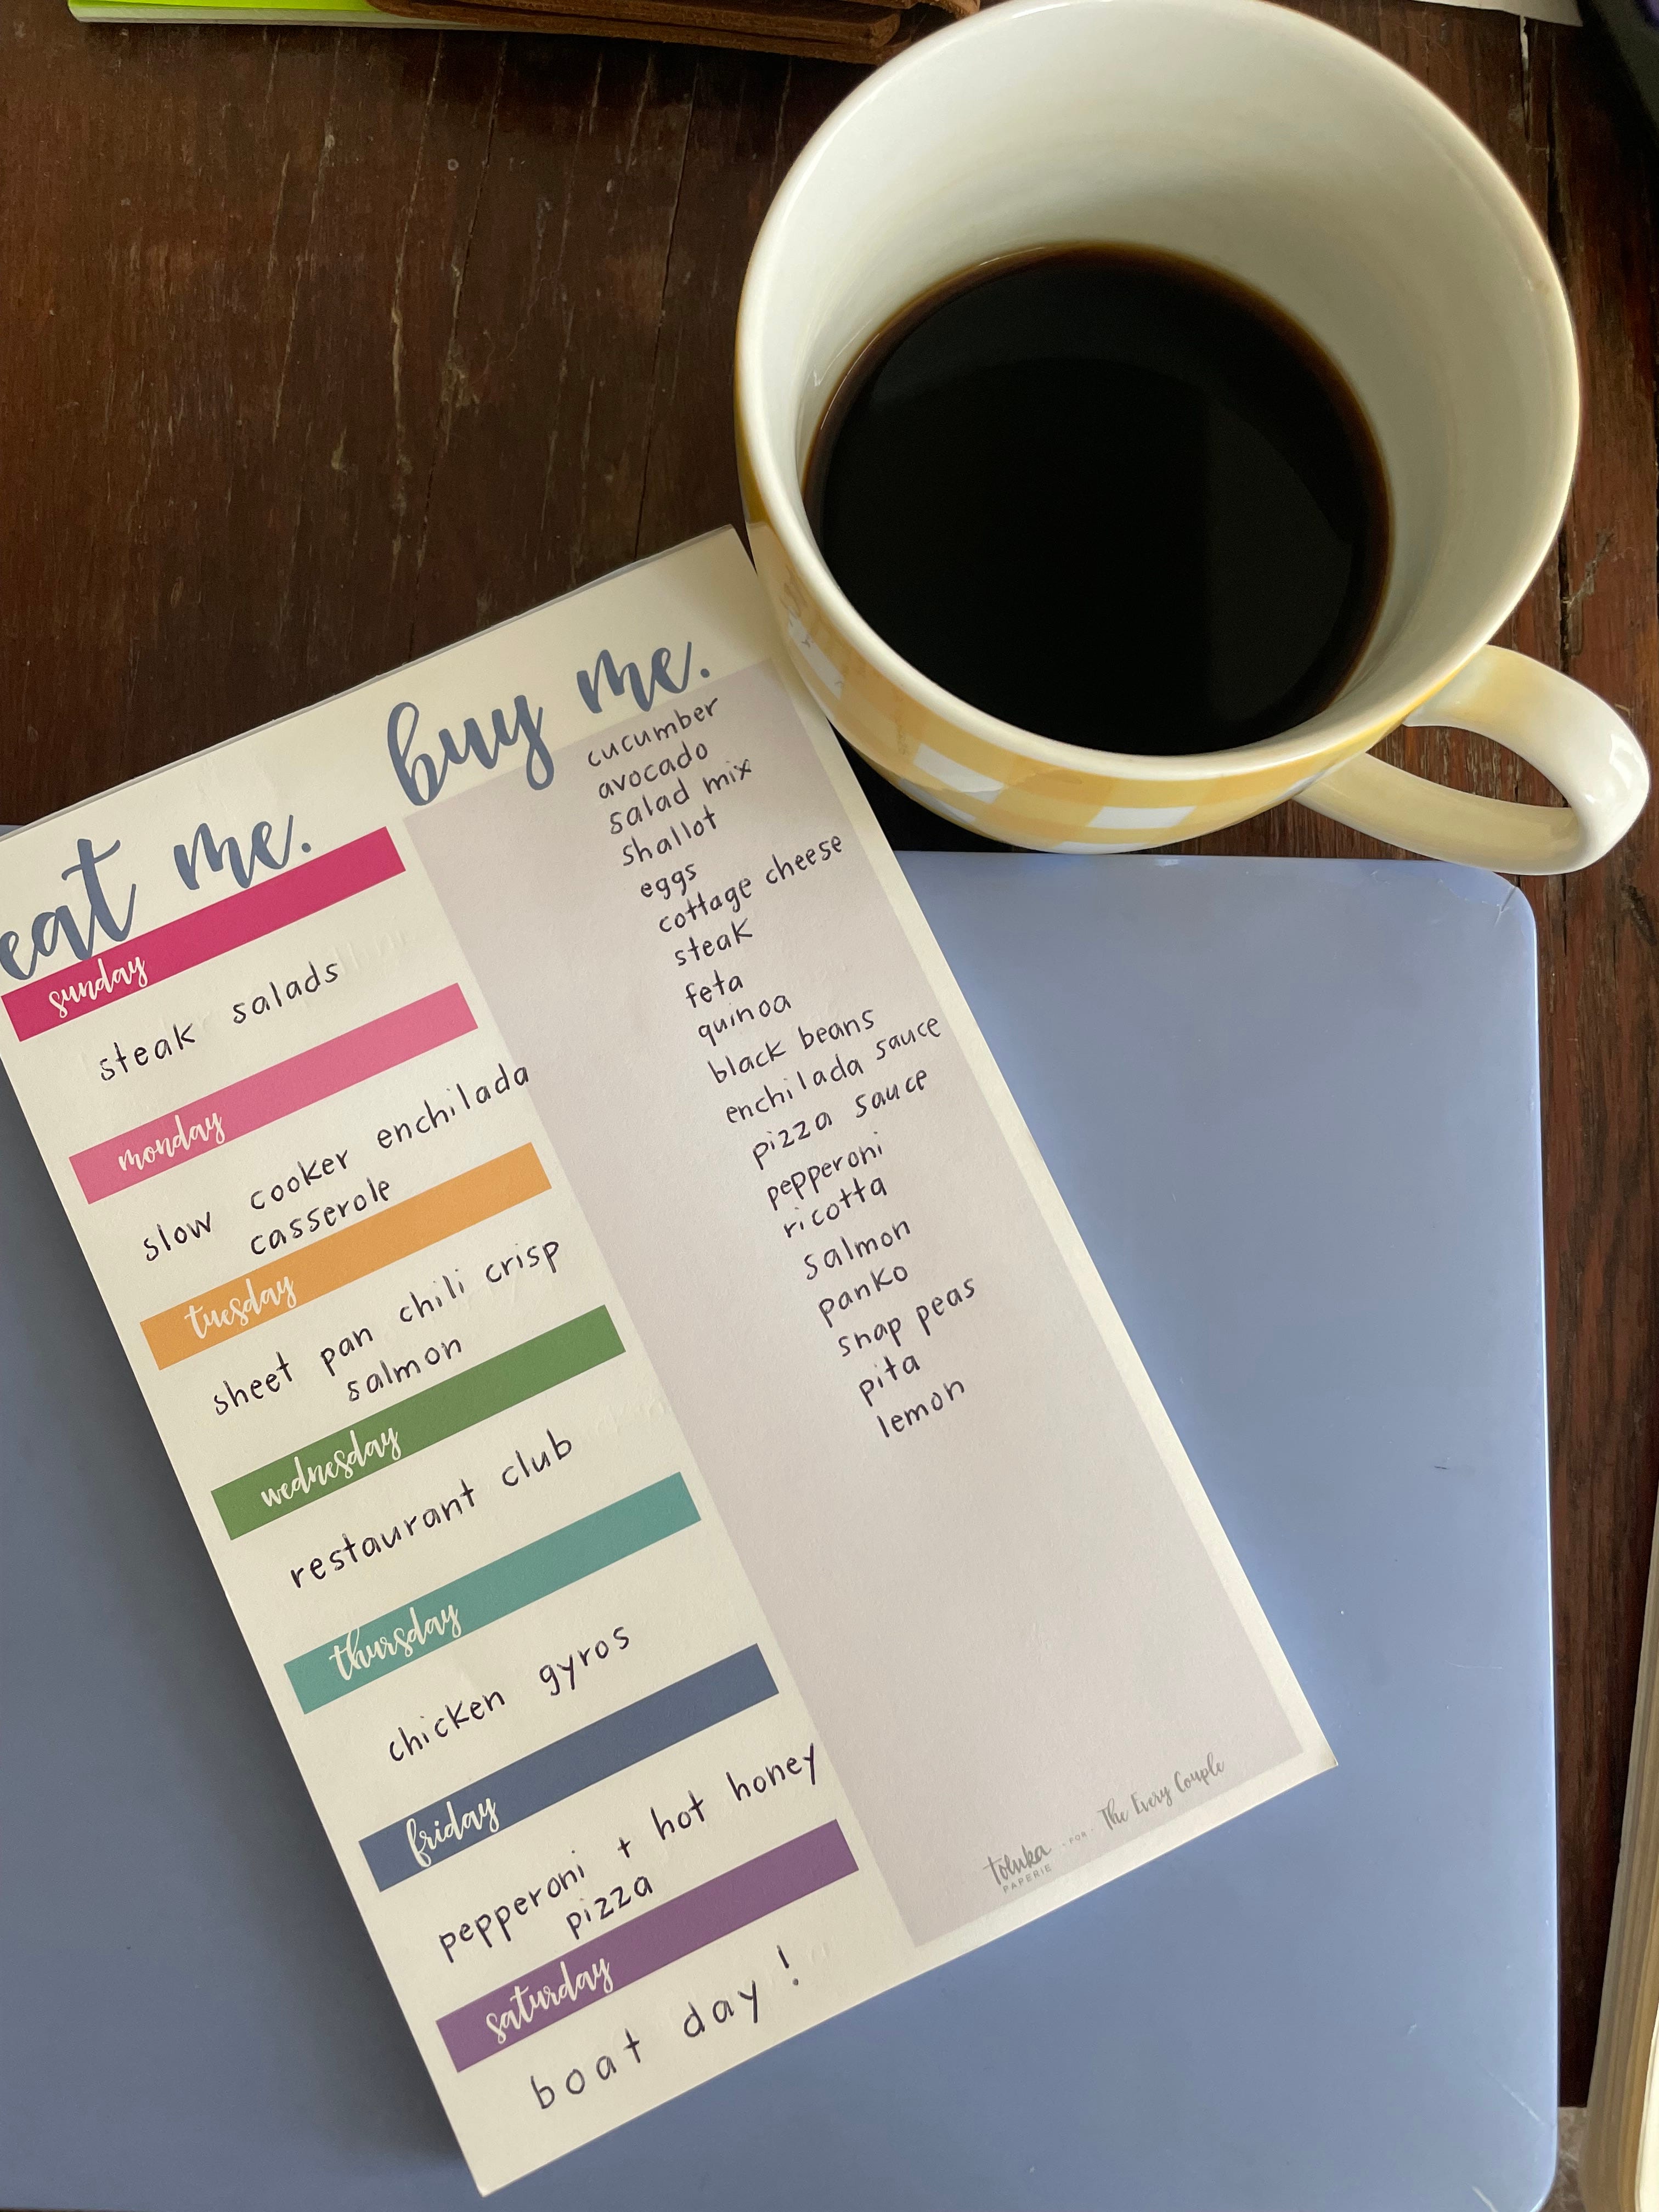 eat me.
sunday
steak salads
monday
slow cooker enchilada
casserole
tuesday
sheet pan chili crisp
salmon
wednesday
restaurant club
thursday
chicken gyros
friday
pepperoni + hot honey
pizza
saturday
boat day!
buy me.
cucumber
avocado
salad mix
shallot
eggs
cottage cheese
steak
feta
quinoa
black beans
enchilada sauce
pizza sauce
pepperoni
ricotta
salmon
panko
snap peas
pita
lemon
toluka
PAPERIE
- FOR -
The Every Couple